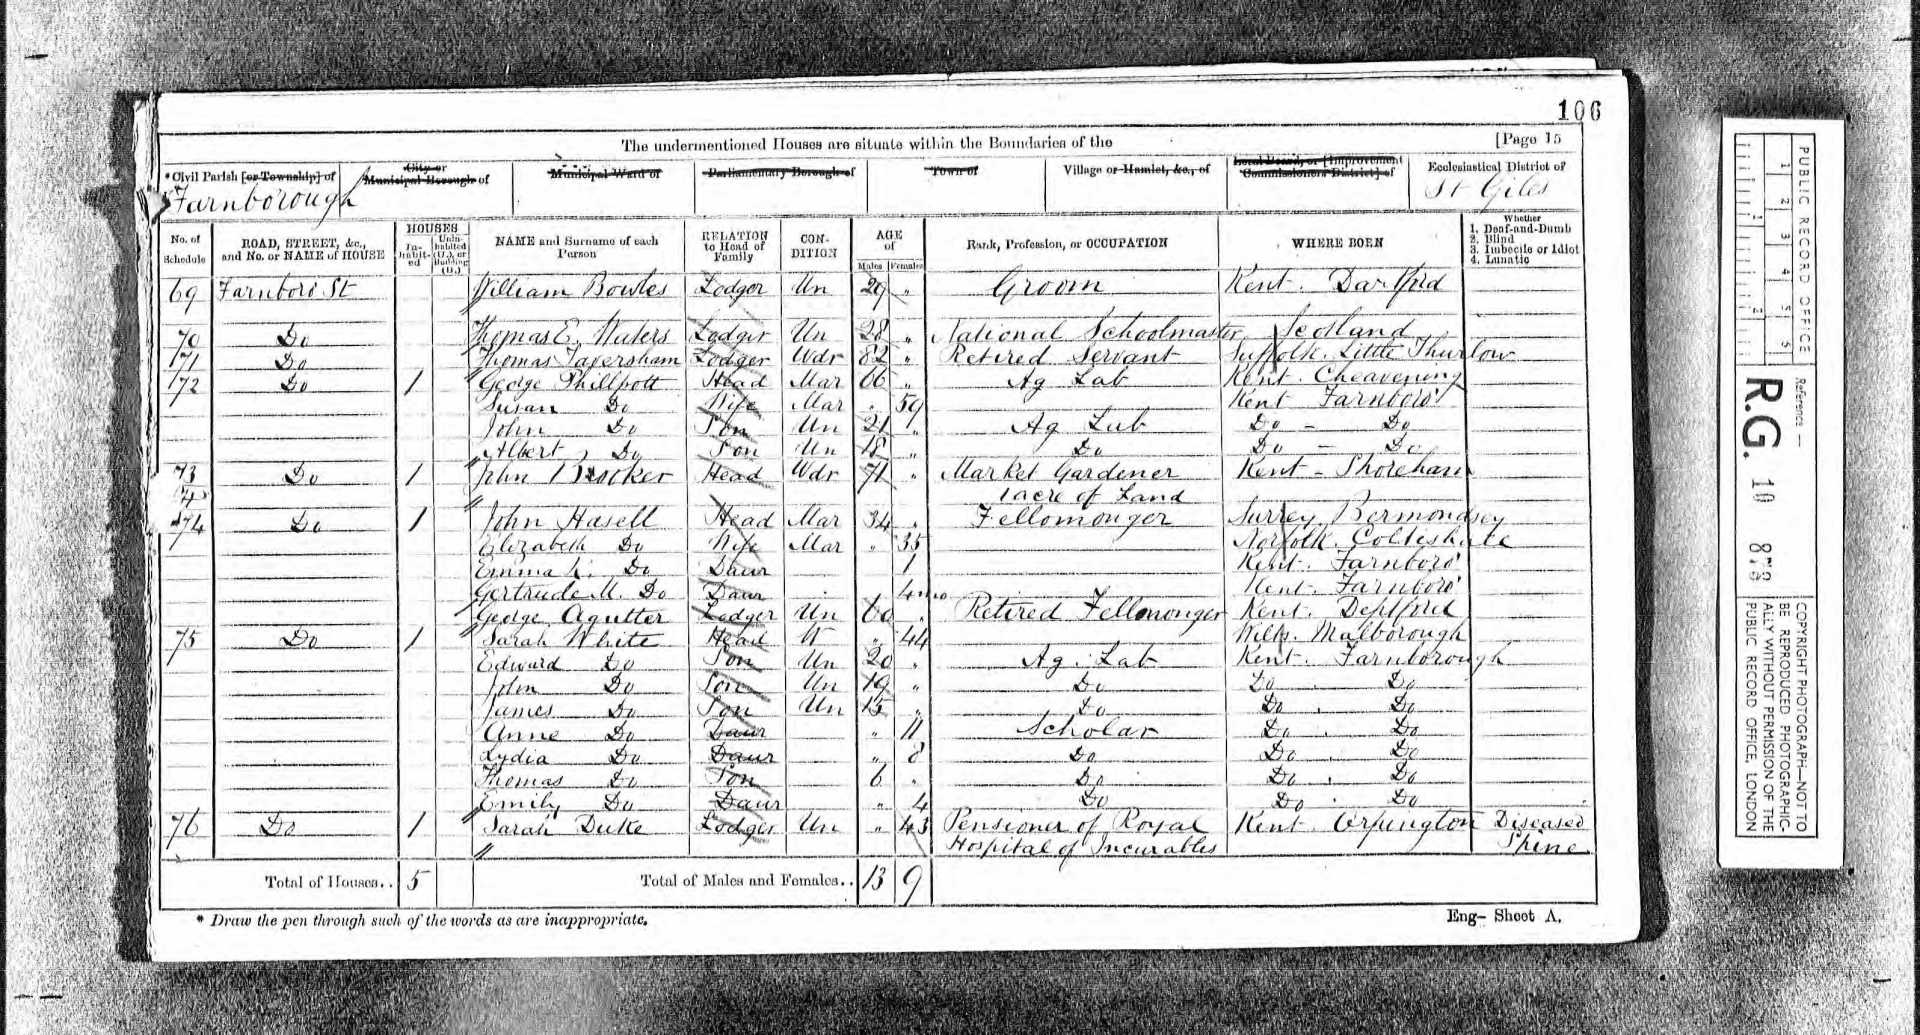 106
The undermentioned Houses are situate within the Boundaries of the [Page 15
*Civil Parish [or Township] of City or Municipal Borough of Municipal Ward of Parliamentary Borough of Town of Village or Hamlet, &c., of Local Board, or [Improvement Commissioners District] of Ecclesiastical District of
Farnborough St Giles
No. of Schedule ROAD, STREET, &c., and No. or NAME of HOUSE HOUSES Inhabited Uninhabited (U.), or Building (B.) NAME and Surname of each Person RELATION to Head of Family CONDITION AGE of Males Females Rank, Profession, or OCCUPATION WHERE BORN Whether 1. Deaf-and-Dumb 2. Blind 3. Imbecile or Idiot 4. Lunatic
69 Farnboro' St William Bowles Lodger Un 29 " Groom Kent. Dartford
70 Do Thomas E. Waters Lodger Un 28 " National Schoolmaster Scotland
71 Do Thomas Lodger Wdr 82 " Retired Servant Suffolk. Little Thurlow
72 Do 1 George Phillpott Head Mar 66 " Ag Lab Kent. Cheavening
Susan Do Wife Mar " 59 Kent Farnboro'
John Do Son Un 21 " Ag Lab Do - Do
Albert Do Son Un 18 " Do Do - Do
73 Do 1 John Head Wdr 71 " Market Gardener Kent - Shoreham
1 acre of Land
74 Do 1 John Hasell Head Mar 34 " Fellomonger Surrey Bermondsey
Elizabeth Do Wife Mar " 35 Norfolk.
Emma Do Daur 1 Kent. Farnboro'
Gertrude M. Do Daur 4 mo Kent. Farnboro'
George Agutter Lodger Un 60 " Retired Fellmonger Kent. Deptford
75 Do 1 Sarah White Head W " 44 Wilts. Malborough
Edward Do Son Un 20 " Ag. Lab Kent. Farnborough
John Do Son Un 19 " Do Do . Do
James Do Son Un 13 " Do Do . Do
Anne Do Daur " 11 Scholar Do . Do
Lydia Do Daur " 8 Do Do . Do
Thomas Do Son 6 " Do Do . Do
Emily Do Daur " 4 Do Do . Do
76 Do 1 Sarah Duke Lodger Un " 43 Pensioner of Royal Kent. Orpington Diseased
Hospital of Incurables Spine
Total of Houses.. 5 Total of Males and Females.. 13 9
* Draw the pen through such of the words as are inappropriate.
Eng- Sheet A.
PUBLIC RECORD OFFICE
1 2 3 4 5 5
1 2
Reference :-
R.G. 10 873
COPYRIGHT PHOTOGRAPH—NOT TO
BE REPRODUCED PHOTOGRAPHIC-
ALLY WITHOUT PERMISSION OF THE
PUBLIC RECORD OFFICE, LONDON